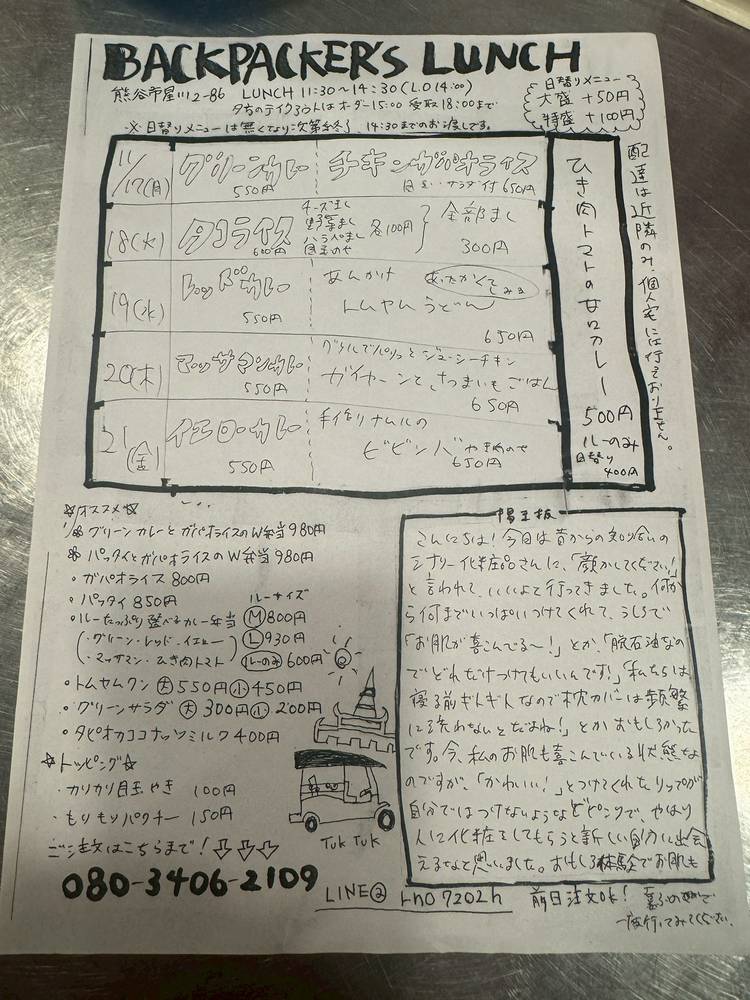 BACKPACKER'S LUNCH
熊谷市星川2-86 LUNCH 11:30~14:30 (L.O 14:00)
夕方のテイクアウトはオーダー15:00 受取18:00まで
※日替りメニューは無くなり次第終了 14:30までのお渡しです。
日替りメニュー
大盛 +50円
特盛 +100円
11/17(月)
グリーンカレー
550円
チキンガパオライス
目玉・サラダ付 650円
18(火)
タコライス
600円
チーズまし
野菜まし
ハラペまし
目玉のせ
各100円
全部まし
300円
19(水)
レッドカレー
550円
あんかけ
あったかくてしみる
トムヤムうどん
650円
20(木)
マッサマンカレー
550円
グリルでパリっとジューシーチキン
ガイヤーンと、さつまいもごはん
650円
21(金)
イエローカレー
550円
手作りナムルの
ビビンバ
650円
ひき肉トマトの甘口カレー
500円
ルーのみ
日替り
400円
配達は近隣のみ、個人宅には行っておりません。
☆オススメ☆
グリーンカレーとガパオライスのW弁当 980円
パッタイとガパオライスのW弁当 980円
・ガパオライス 800円
・パッタイ 850円
・ルーたっぷり選べるカレー弁当
(・グリーン・レッド・イエロー
・マッサマン・ひき肉トマト)
ルーサイズ
M 800円
L 930円
ルーのみ 600円
・トムヤムクン 大 550円 小 450円
・グリーンサラダ 大 300円 小 200円
・タピオカココナッツミルク 400円
☆トッピング☆
・カリカリ目玉やき 100円
・もりもりパクチー 150円
ご注文はこちらまで!⇩⇩⇩
080-3406-2109
Tuk Tuk
LINE@
前日注文OK!
こんにちは!今日は昔からの知り合いの
シナリー化粧品さんに、「顔かしてください!」
と言われて、いいよと行ってきました。何か
ら何までいっぱいつけてくれて、うしろで
「お肌が喜こんでる~!」とか、「脱石油なの
でどれだけつけてもいいんです!」「私たちは
寝る前ギトギトなので枕カバーは頻繁
に洗わないとだよね!」とかおもしろかった
です。今、私のお肌も喜こんでいる状態な
のですが、「かわいい!」とつけてくれたリップが
自分ではつけないようなどピンクで、やはり
人に化粧をしてもらうと新しい自分に出会
えるなと思いました。おもしろ体験でお肌も
喜ぶので
一度行ってみてください。